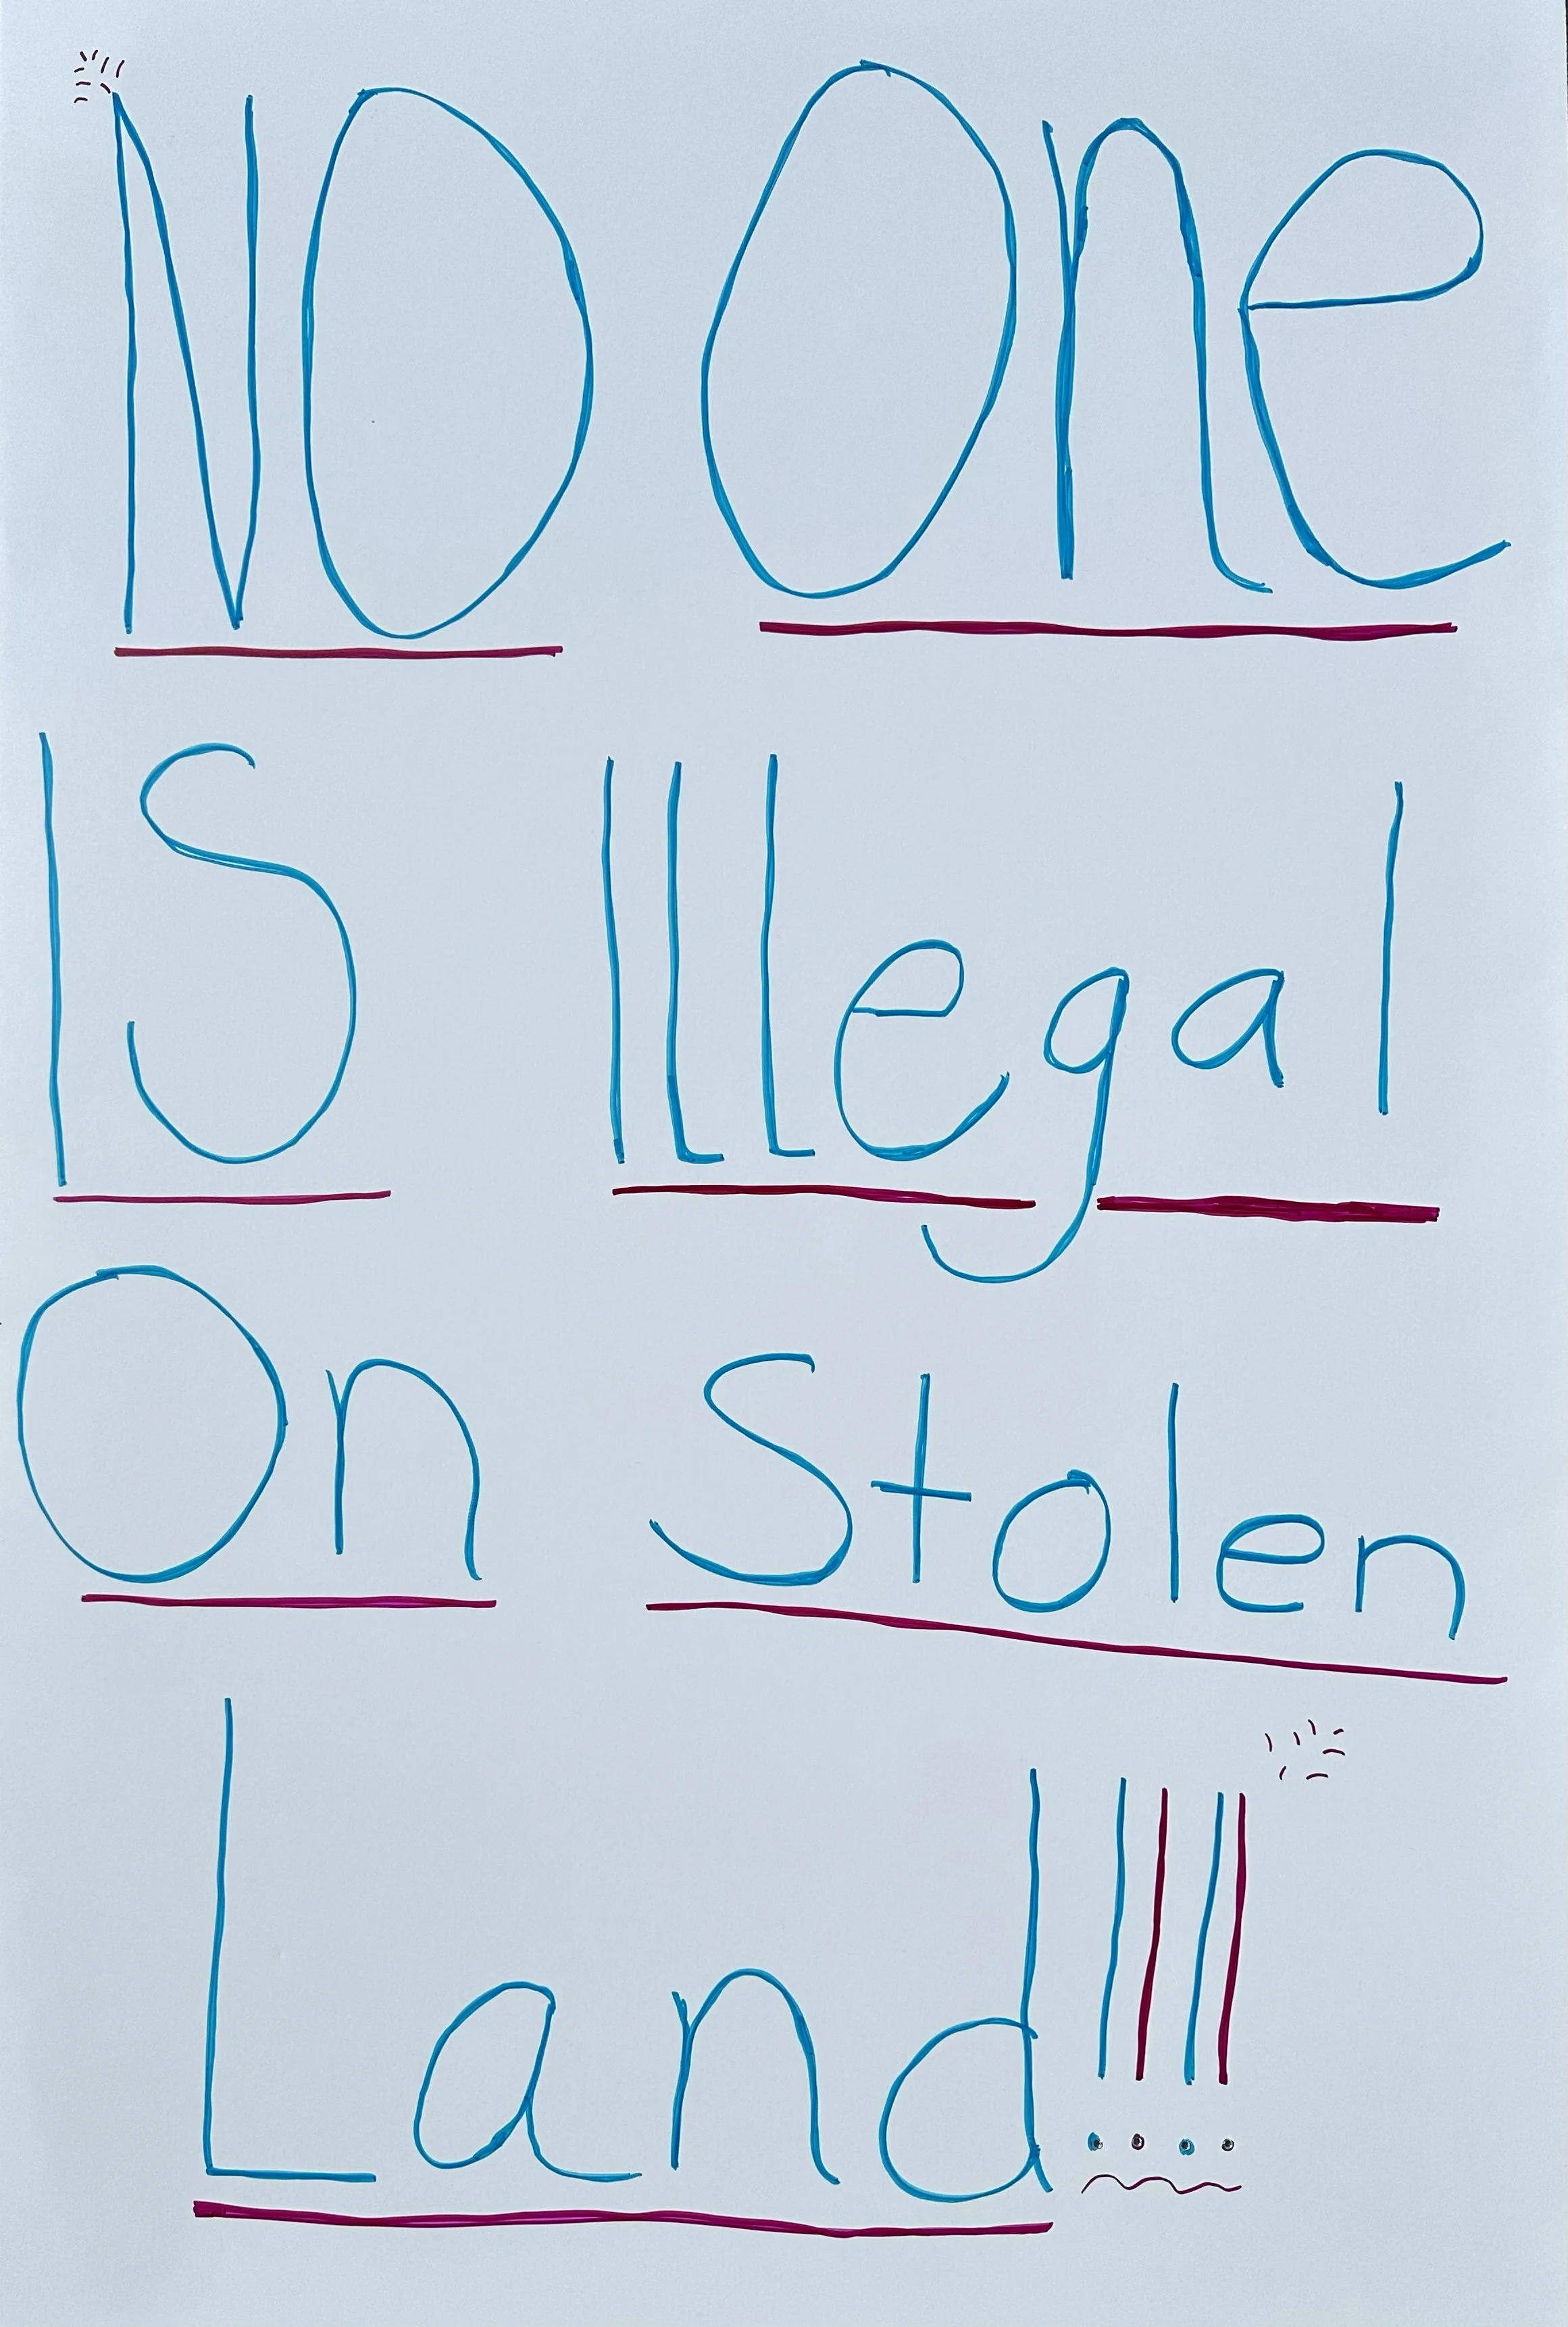 NO One
IS Illegal
On Stolen
Land!!!!